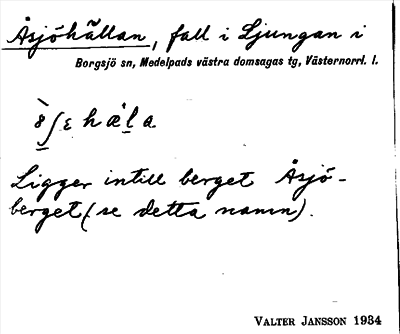 Åsjöhällan, fall i Ljungan i
Borgsjö sn, Medelpads västra domsagas tg, Västernorrl. l.
Ligger intill berget Åsjö-
berget (se detta namn).
VALTER JANSSON 1934